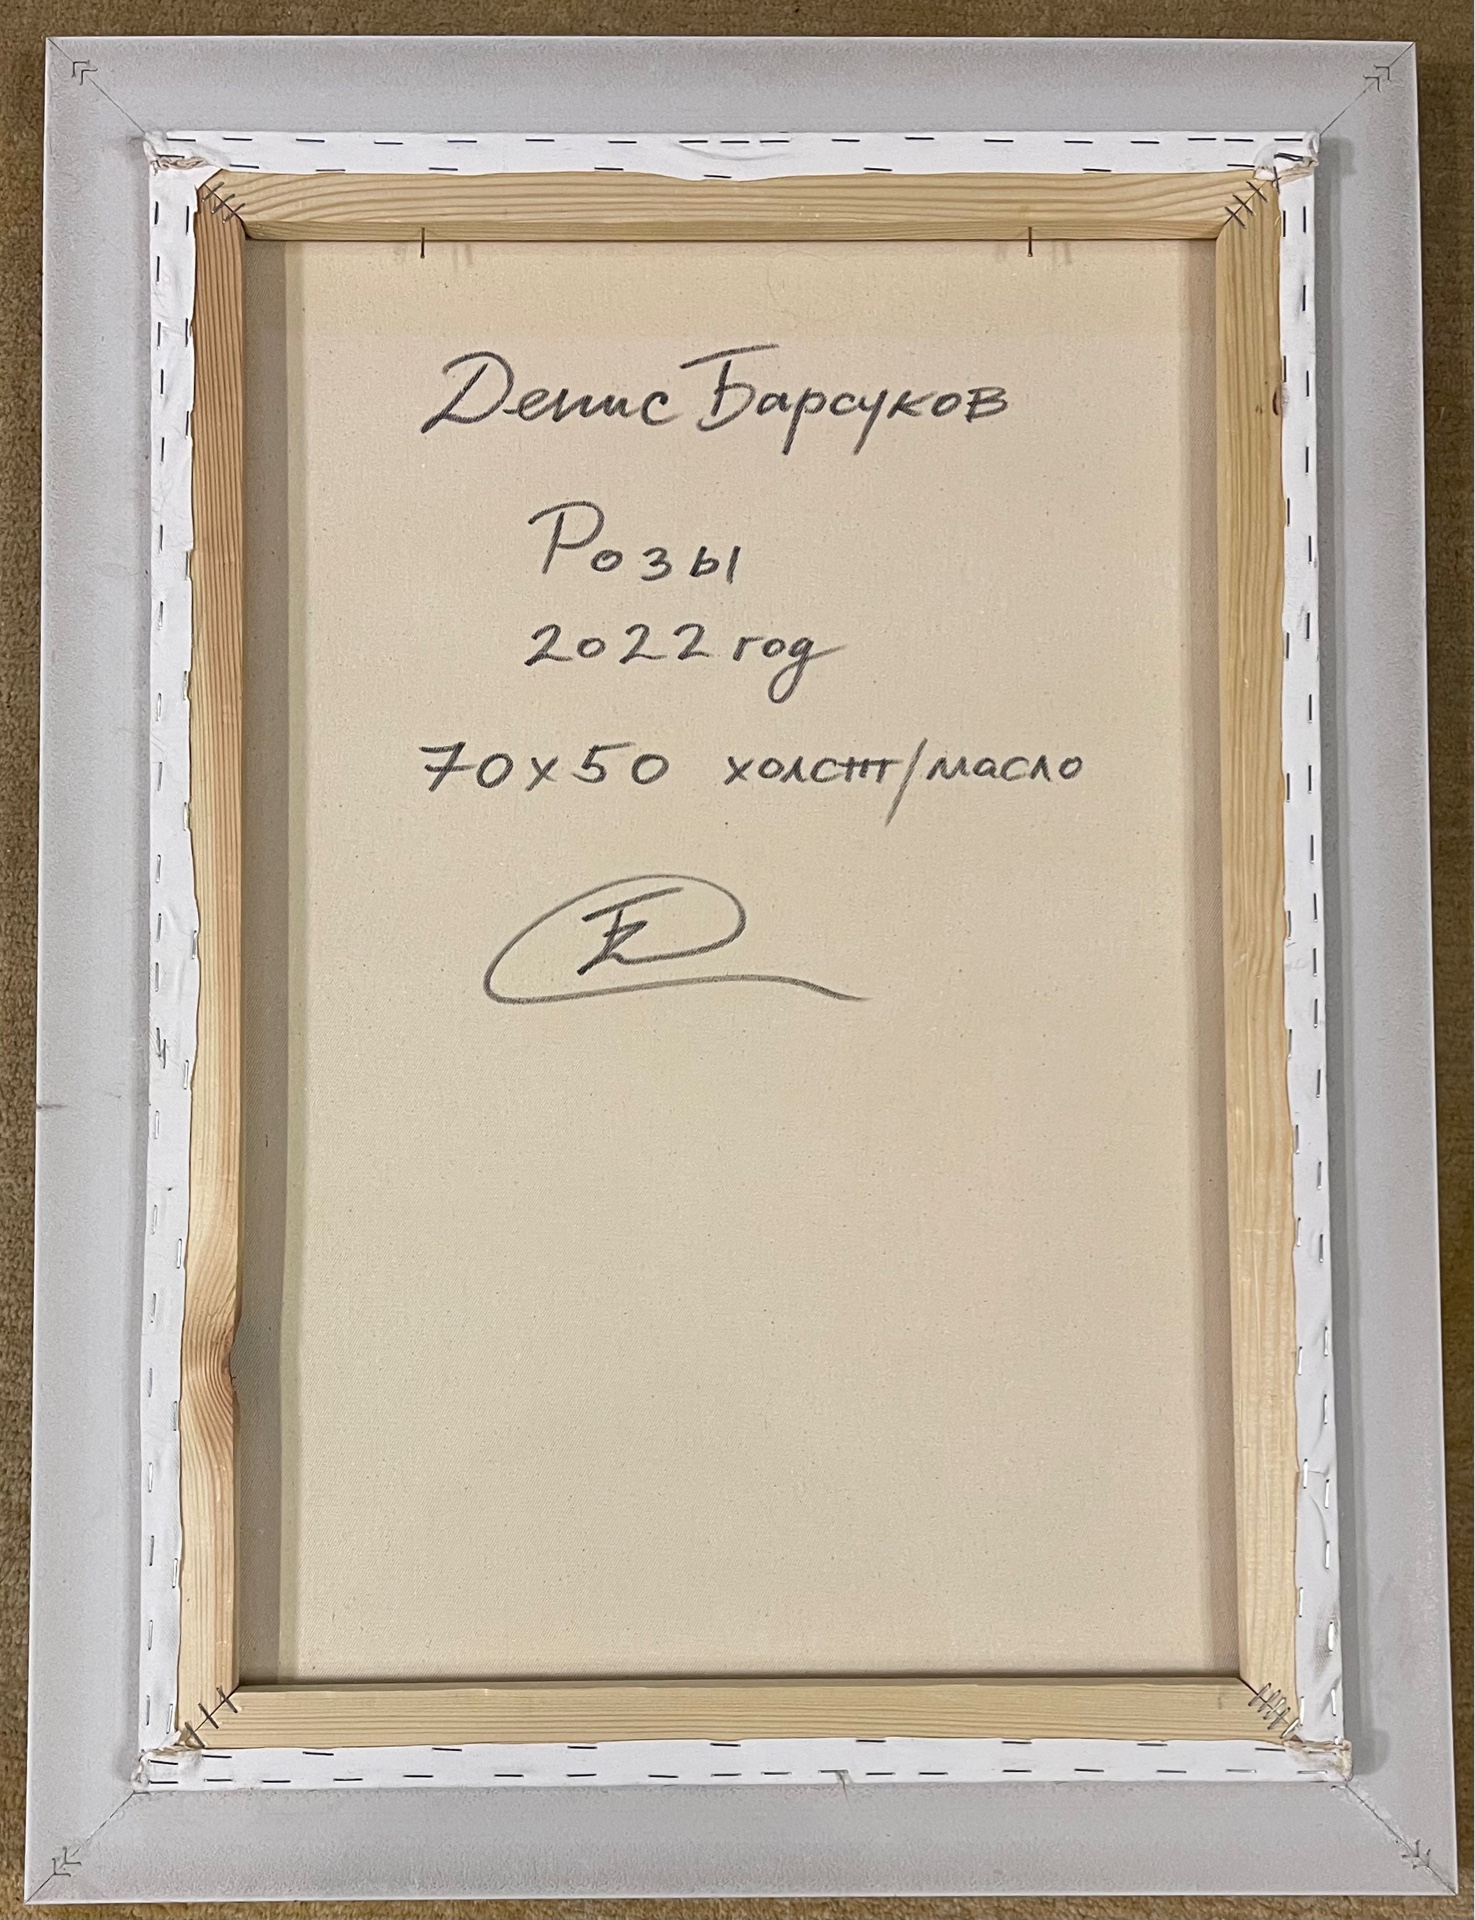 Денис Барсуков
Розы
2022 год
70х50 холст/масло